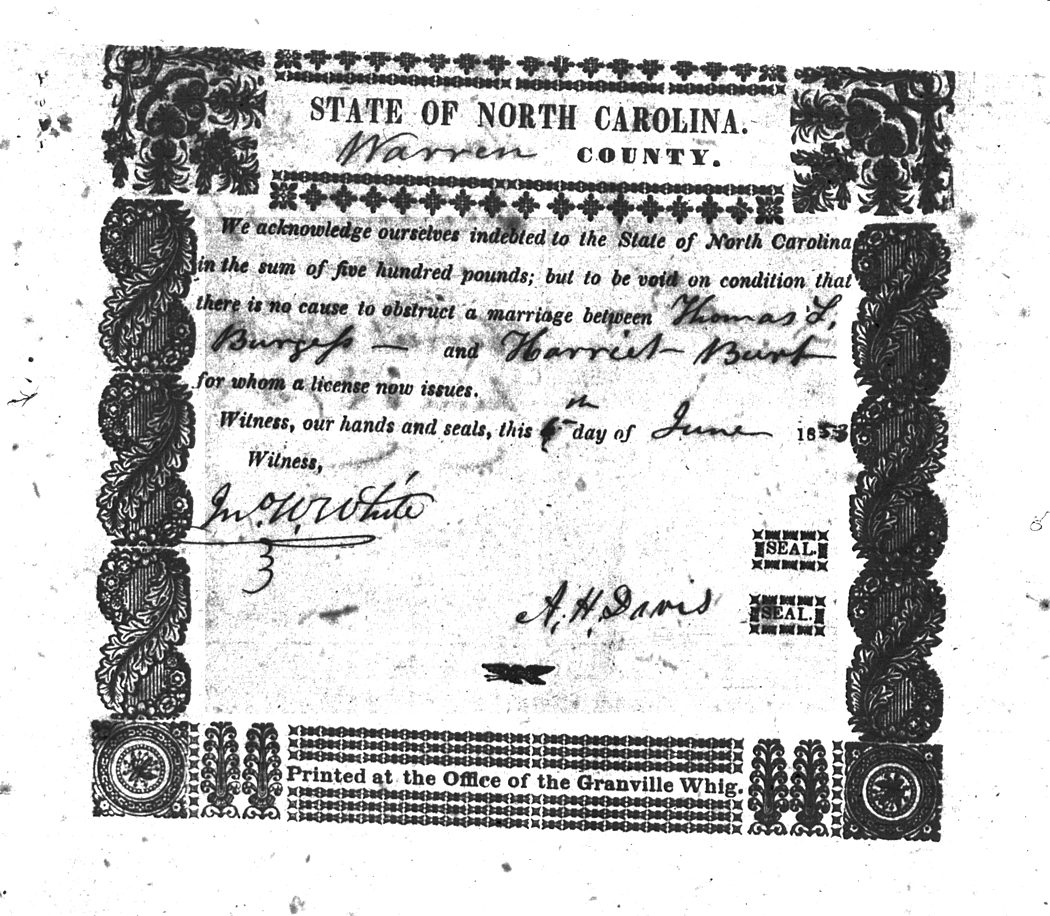 STATE OF NORTH CAROLINA.
Warren COUNTY.
We acknowledge ourselves indebted to the State of North Carolina
in the sum of five hundred pounds; but to be void on condition that
there is no cause to obstruct a marriage between Thomas L,
Burgess — and Harriet Burt
for whom a license now issues.
Witness, our hands and seals, this day of June 1853
Witness,
Jno. W. White
SEAL.
A. H. Davis SEAL.
Printed at the Office of the Granville Whig.